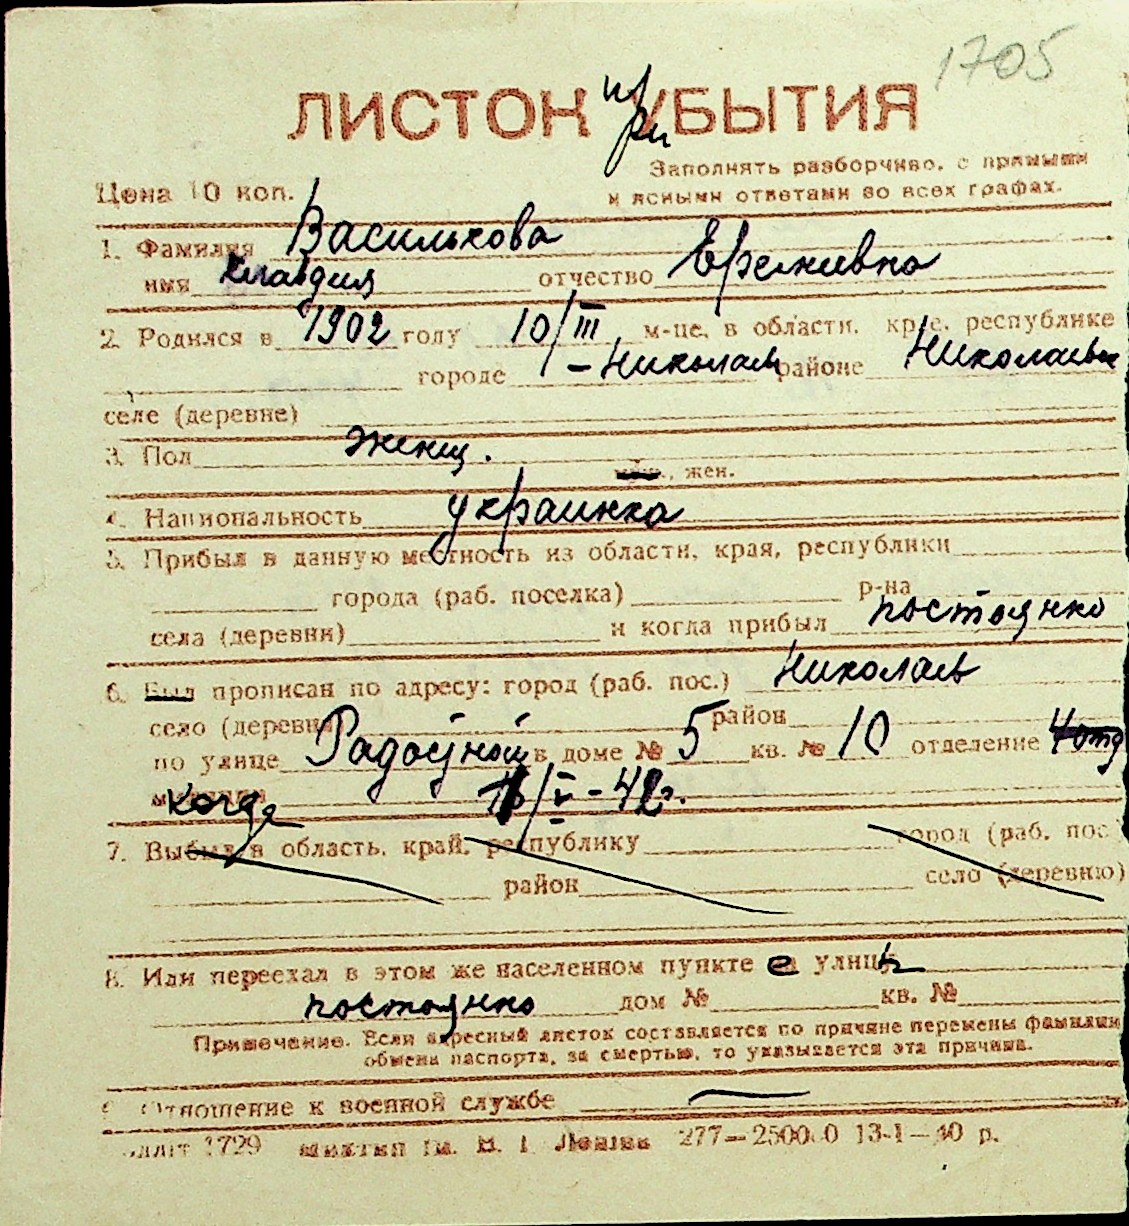 1705
ЛИСТОК при УБЫТИЯ
Заполнять разборчиво, с прямыми
и ясными ответами во всех графах.
Цена 10 коп.
1. Фамилия Василькова
имя Клавдия отчество
2. Родился в 1902 году 10/III м-це, в области, крае, республике
городе – Николаев районе Николаевск
селе (деревне)
3. Пол женщ.
муж., жен.
4. Национальность украинка
5. Прибыл в данную местность из области, края, республики
города (раб. поселка) р-на
села (деревни) и когда прибыл постоянно
6. Был прописан по адресу: город (раб. пос.) Николаев
село (деревня) район
по улице в доме № 5 кв. № 10 отделение 4 отд
когда /V – 42г.
7. Выбыл в область, край, республику город (раб. пос.)
район село (деревню)
8. Или переехал в этом же населенном пункте с улицы
постоянно дом № кв. №
Примечание. Если адресный листок составляется по причине перемены фамилии
обмена паспорта, за смертью, то указывается эта причина.
9. Отношение к военной службе —
1729 им. В. И. Ленина 277—25000 13-1—40 р.